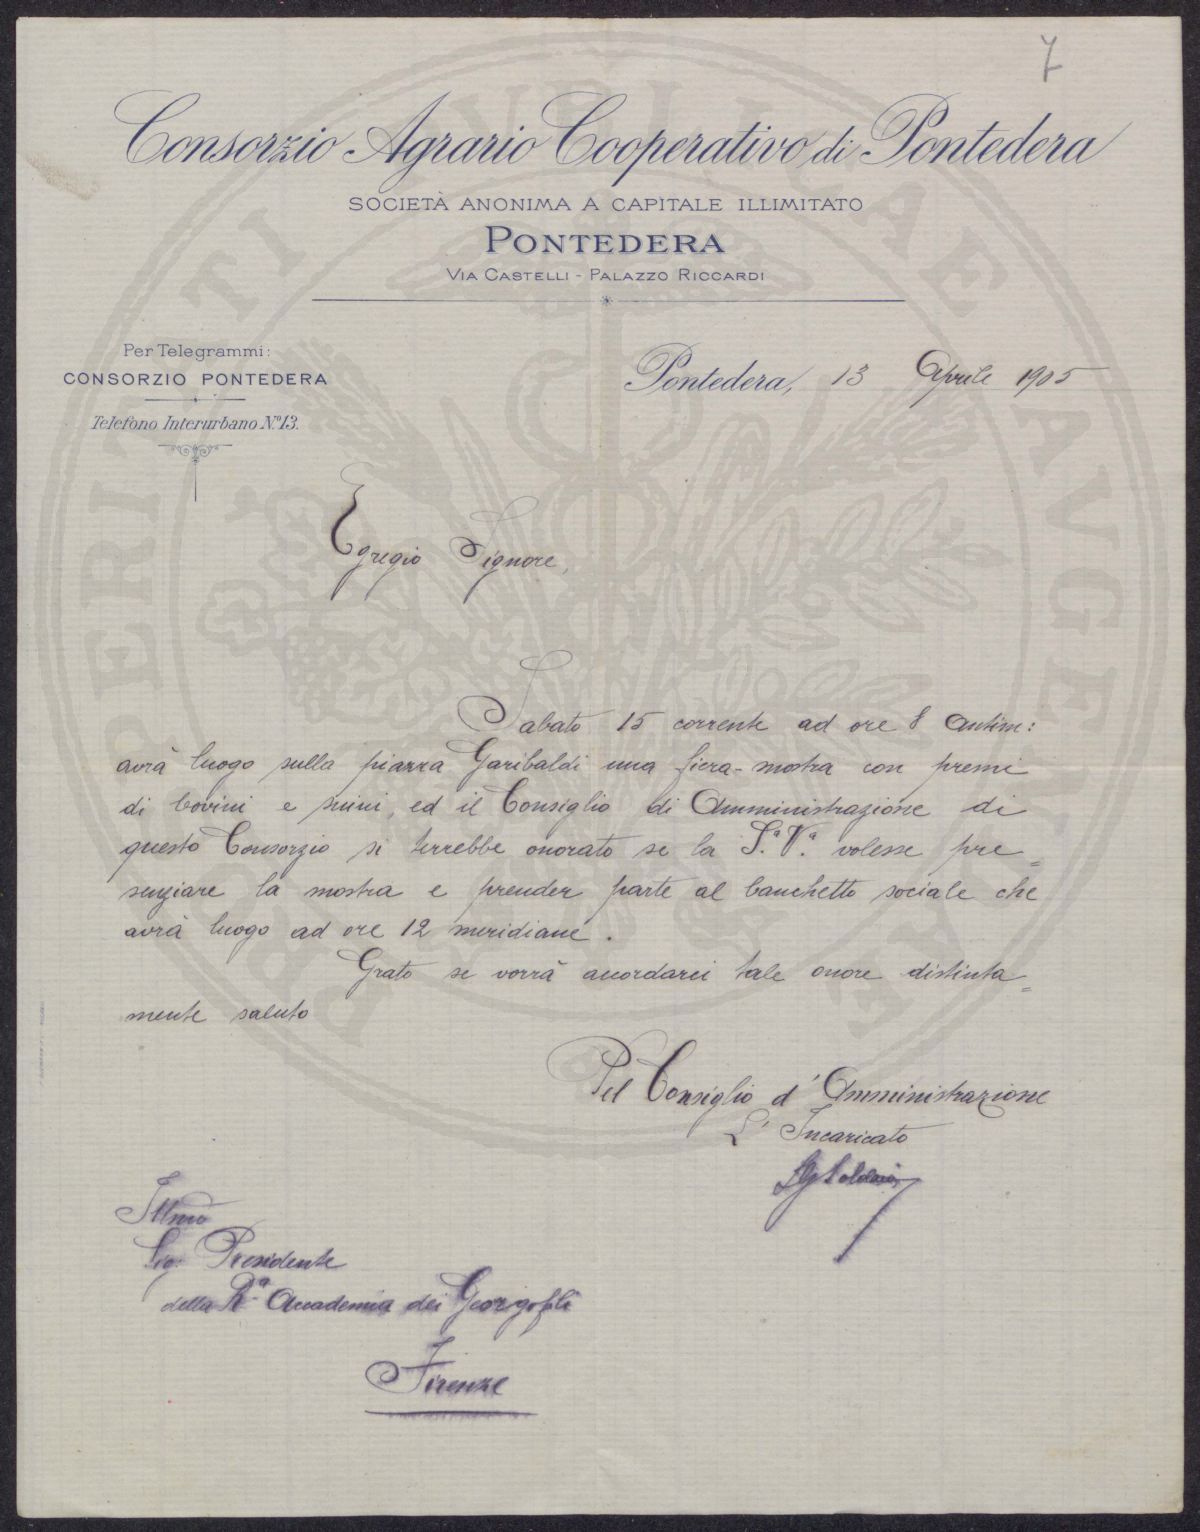 7
Consorzio Agrario Cooperativo di Pontedera
SOCIETÀ ANONIMA A CAPITALE ILLIMITATO
PONTEDERA
VIA CASTELLI - PALAZZO RICCARDI
Per Telegrammi:
CONSORZIO PONTEDERA
Telefono Interurbano N.º 13.
Pontedera, 13 Aprile 1905
Egregio Signore,
Sabato 15 corrente ad ore 8 antim:
avrà luogo sulla piazza Garibaldi una fiera-mostra con premi
di bovini e suini, ed il Consiglio di Amministrazione di
questo Consorzio si terrebbe onorato se la S.ª V.ª volesse pre=
senziare la mostra e prender parte al banchetto sociale che
avrà luogo ad ore 12 meridiane.
Grato se vorrà accordarci tale onore distinta=
mente saluto
Pel Consiglio d'Amministrazione
L'Incaricato
Illmo
Sig. Presidente
della Rª Accademia dei Georgofili
Firenze